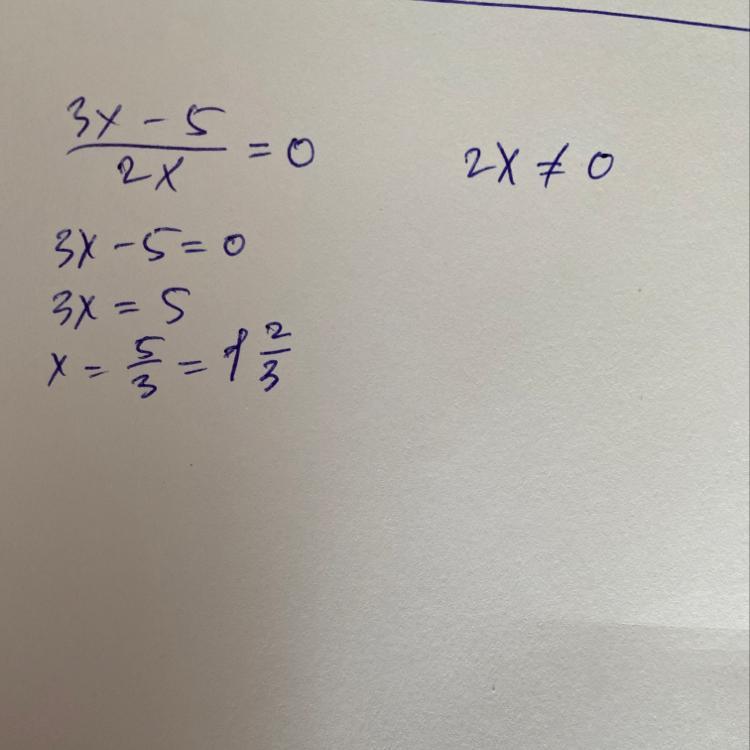 (3x - 5)/(2x) = 0
2x ≠ 0
3x - 5 = 0
3x = 5
x = 5/3 = 1 2/3